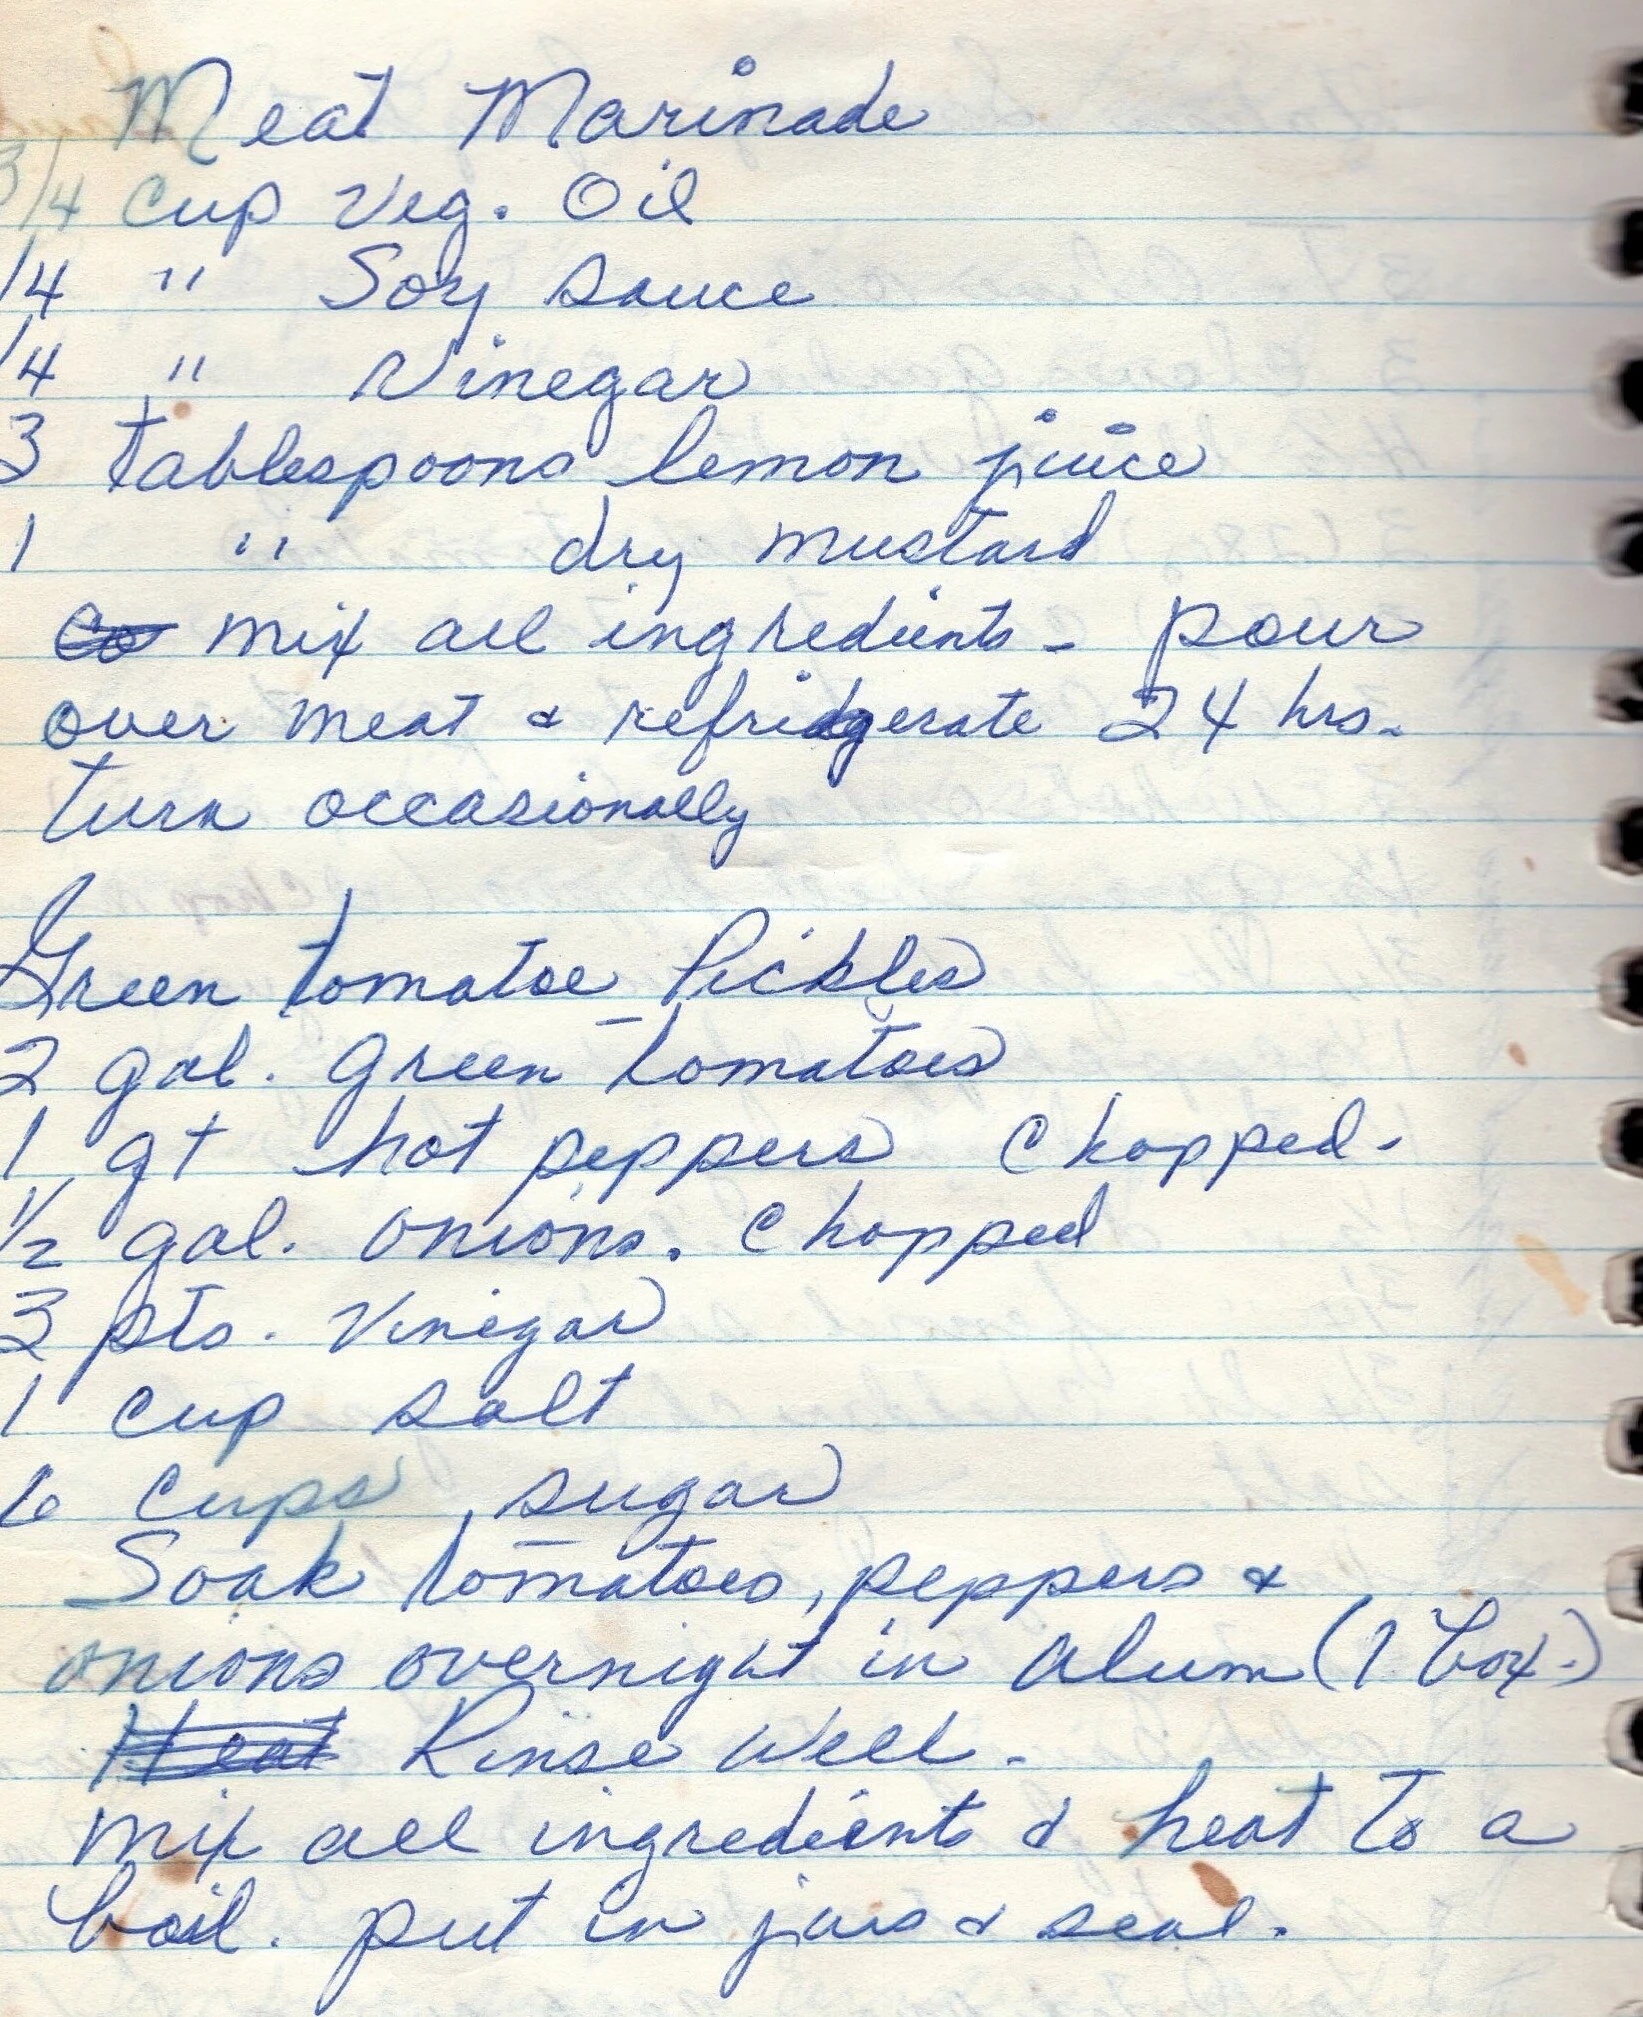 Meat Marinade
3/4 Cup Veg. Oil
/4 " Soy Sauce
/4 " Vinegar
3 Tablespoons lemon juice
1 " dry mustard
mix all ingredients - pour
over meat & refridgerate 24 hrs.
turn occasionally
Green tomatoe Pickles
2 gal. green tomatoes
1 qt hot peppers chopped.
1/2 gal. onions. chopped
3 pts. vinegar
1 cup salt
6 cups sugar
Soak tomatoes, peppers &
onions overnight in alum (1 box.)
Heat Rinse well.
mix all ingredients & heat to a
boil. put in jars & seal.